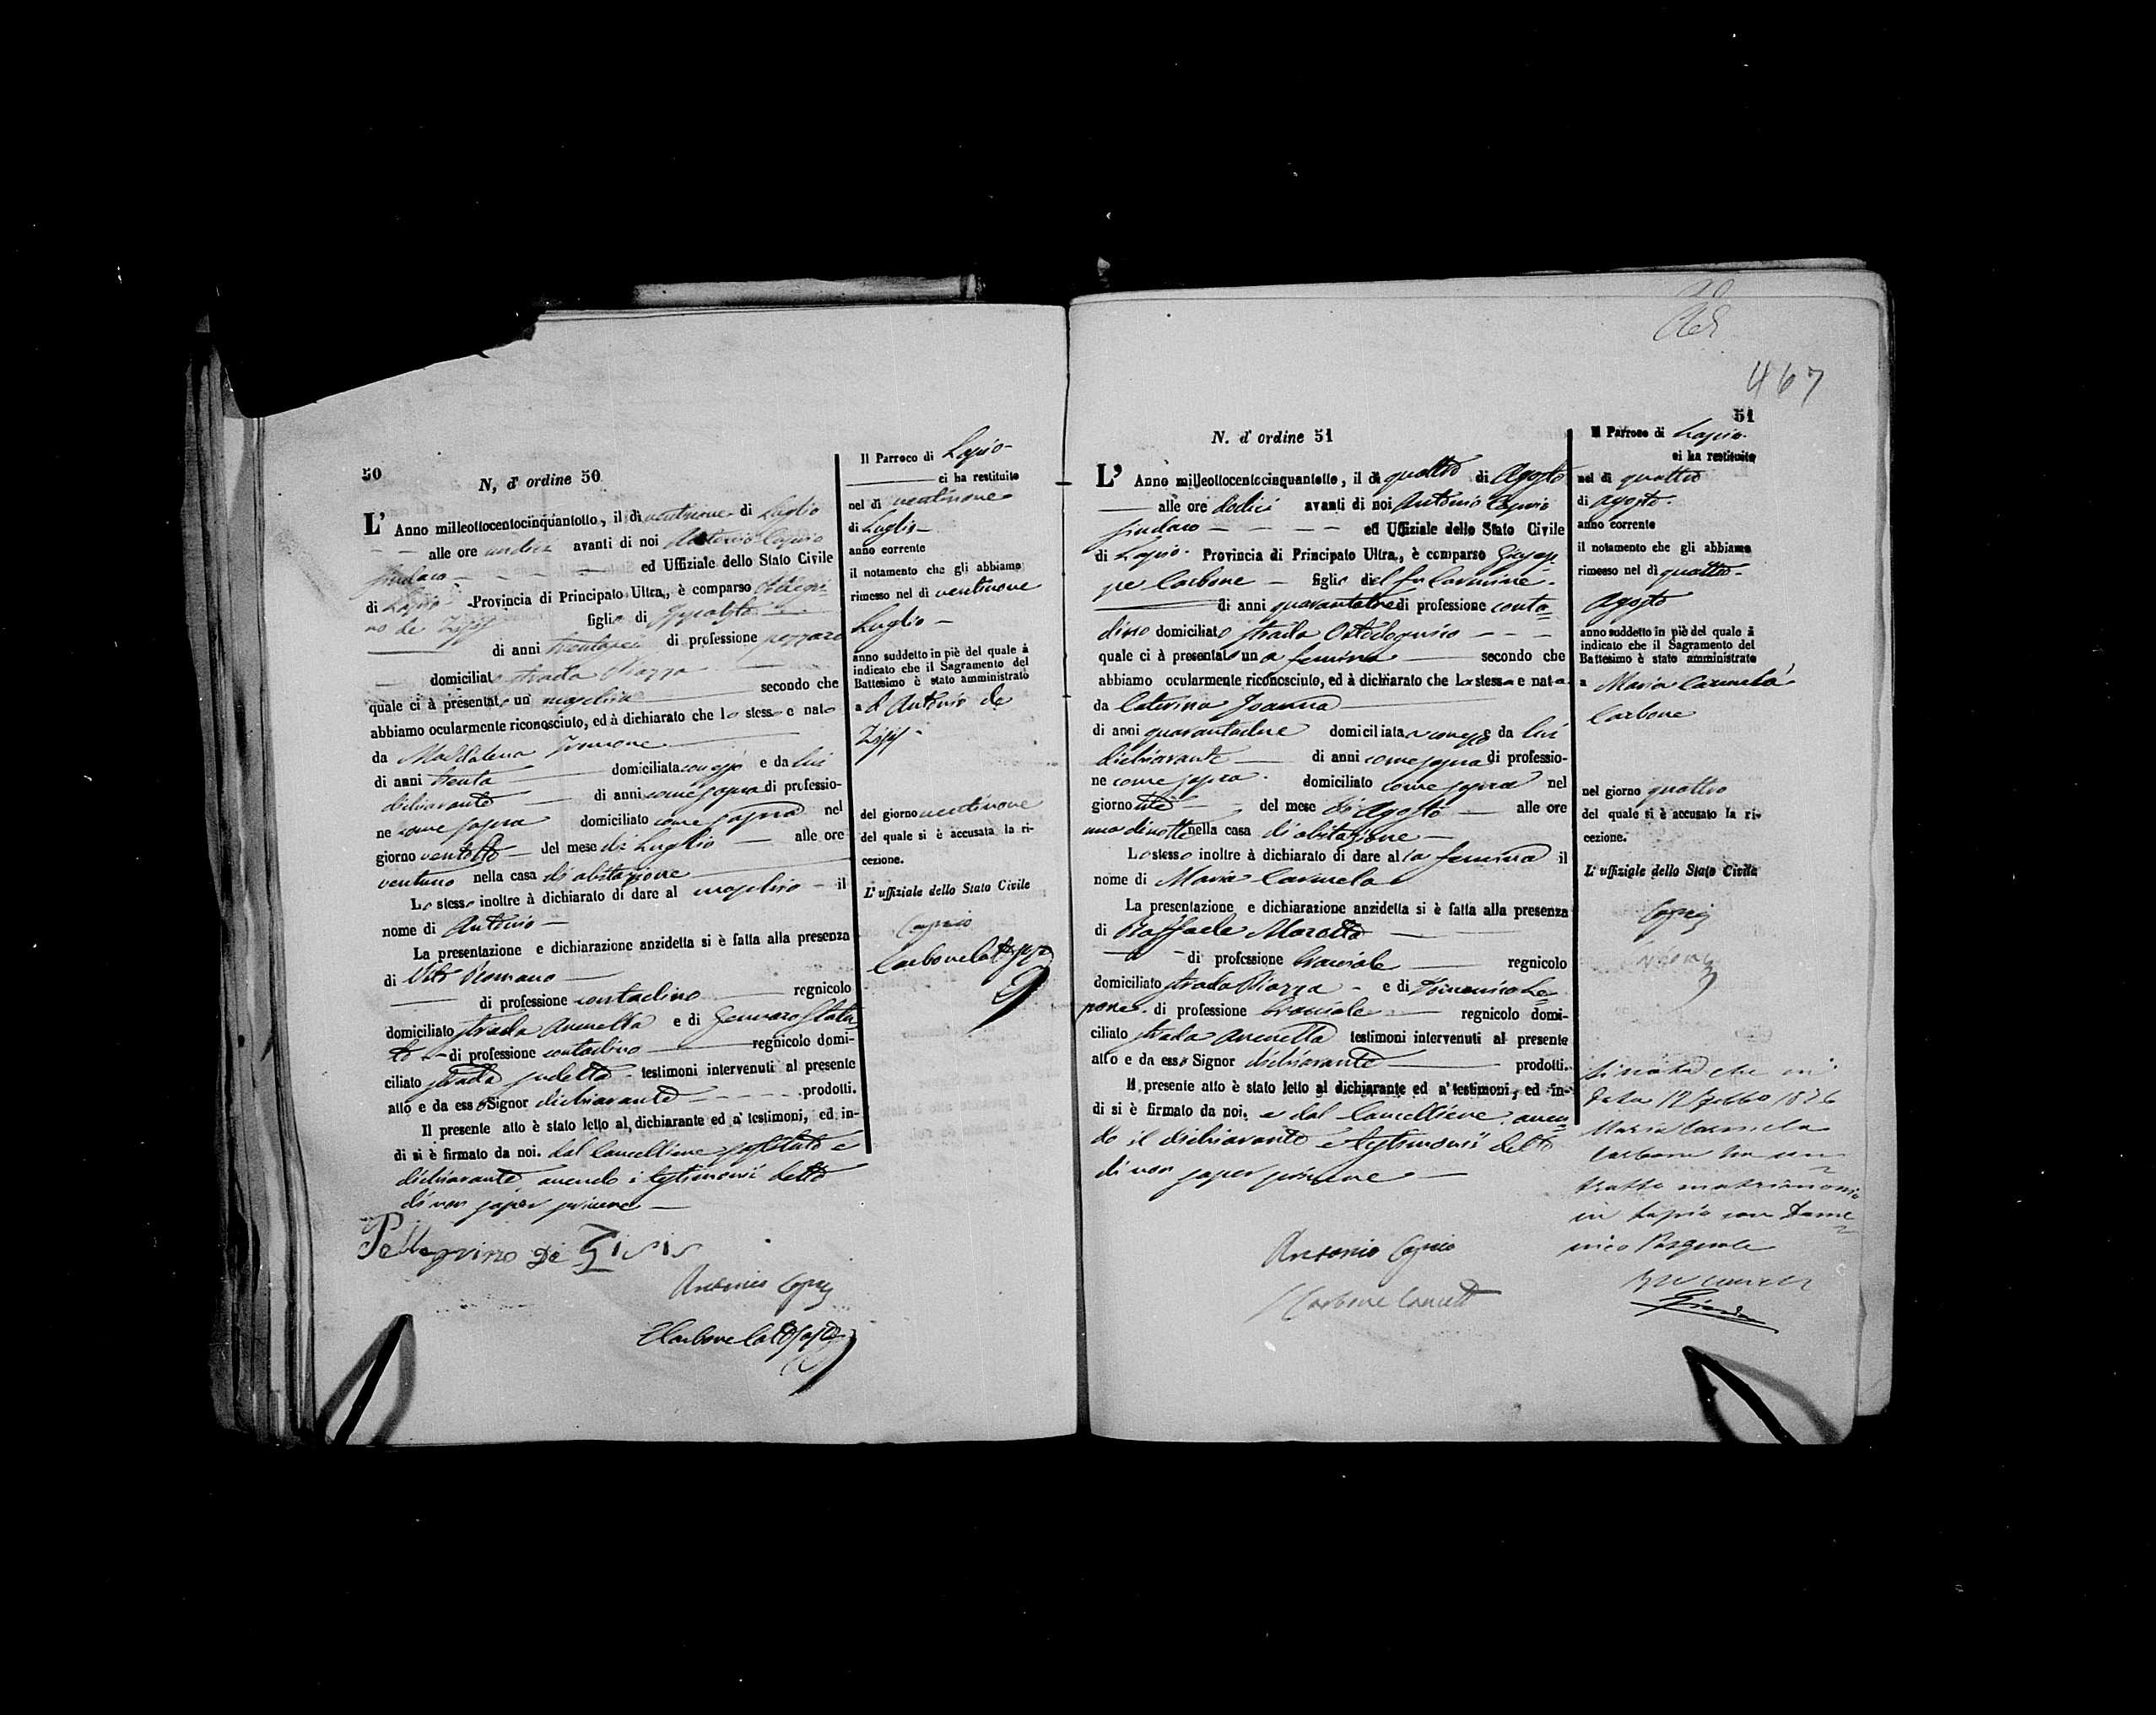 50
N, d' ordine 50
L' Anno milleottocentocinquantotto, il dì ventinove di Luglio
alle ore undici avanti di noi Antonio Caprio
Sindaco ed Uffiziale dello Stato Civile
di Lapio Provincia di Principato Ultra, è comparso Pellegri-
no de Zisis figlio di Ippolito
di anni trentasei di professione
domiciliato strada Piazza
quale ci à presentato un mascolino secondo che
abbiamo ocularmente riconosciuto, ed à dichiarato che lo stesso e nato
da Maddalena
di anni trenta domiciliata con esso e da lui
dichiarante di anni come sopra di professio-
ne come sopra domiciliato come sopra nel
giorno ventotto del mese di Luglio alle ore
ventuno nella casa di abitazione
Lo stesso inoltre à dichiarato di dare al mascolino il
nome di Antonio
La presentazione e dichiarazione anzidetta si è fatta alla presenza
di Vito Romano
di professione contadino regnicolo
domiciliato strada e di Gennaro
di professione contadino regnicolo domi-
ciliato strada sudetta testimoni intervenuti al presente
atto e da esso Signor dichiarante prodotti.
Il presente atto è stato letto al dichiarante ed a' testimoni, ed in-
di si è firmato da noi. dal Cancelliere sostituto e
dichiarante, avendo i testimoni detto
di non saper scrivere
Pellegrino De Zisis
Antonio Caprio
Carbone
Il Parroco di Lapio
ci ha restituito
nel dì ventinove
di Luglio
anno corrente
il notamento che gli abbiamo
rimesso nel dì ventinove
Luglio
anno suddetto in piè del quale à
indicato che il Sagramento del
Battesimo è stato amministrato
a Antonio de
Zisis
del giorno ventinove
del quale si è accusata la ri-
cezione.
L' uffiziale dello Stato Civile
Caprio
Carbone
467
51
N. d' ordine 51
L' Anno milleottocentocinquantotto, il dì quattro di Agosto
alle ore dodici avanti di noi Antonio Caprio
Sindaco ed Uffiziale dello Stato Civile
di Lapio Provincia di Principato Ultra, è comparso Giusep-
pe Carbone figlio del fu Carmine
di anni quarantatre di professione conta=
dino domiciliato strada
quale ci à presentato una femina secondo che
abbiamo ocularmente riconosciuto, ed à dichiarato che la stessa e nata
da Caterina Joanna
di anni quarantadue domiciliata con esso e da lui
dichiarante di anni come sopra di professio-
ne come sopra domiciliato come sopra nel
giorno tre del mese di Agosto alle ore
una di notte nella casa di abitazione
Lo stesso inoltre à dichiarato di dare alla femina il
nome di Maria Carmela
La presentazione e dichiarazione anzidetta si è fatta alla presenza
di Raffaele Marotta
di professione regnicolo
domiciliato strada Piazza e di Domenico Le=
pore di professione regnicolo domi-
ciliato strada testimoni intervenuti al presente
atto e da esso Signor dichiarante prodotti.
Il presente atto è stato letto al dichiarante ed a' testimoni, ed in-
di si è firmato da noi. e dal Cancelliere, aven=
do il dichiarante e testimonii detto
di non saper scrivere
Antonio Caprio
Carbone
Il Parroco di Lapio
ci ha restituito
nel dì quattro
di agosto
anno corrente
il notamento che gli abbiamo
rimesso nel dì quattro
Agosto
anno suddetto in piè del quale à
indicato che il Sagramento del
Battesimo è stato amministrato
a Maria Carmela
Carbone
nel giorno quattro
del quale si è accusato la ri-
cezione.
L' uffiziale dello Stato Civile
Caprio
Si nota che in
data 12 1876
Maria Carmela
Carbone ha con=
tratto matrimonio
in Lapio con Dome=
nico Pasquale